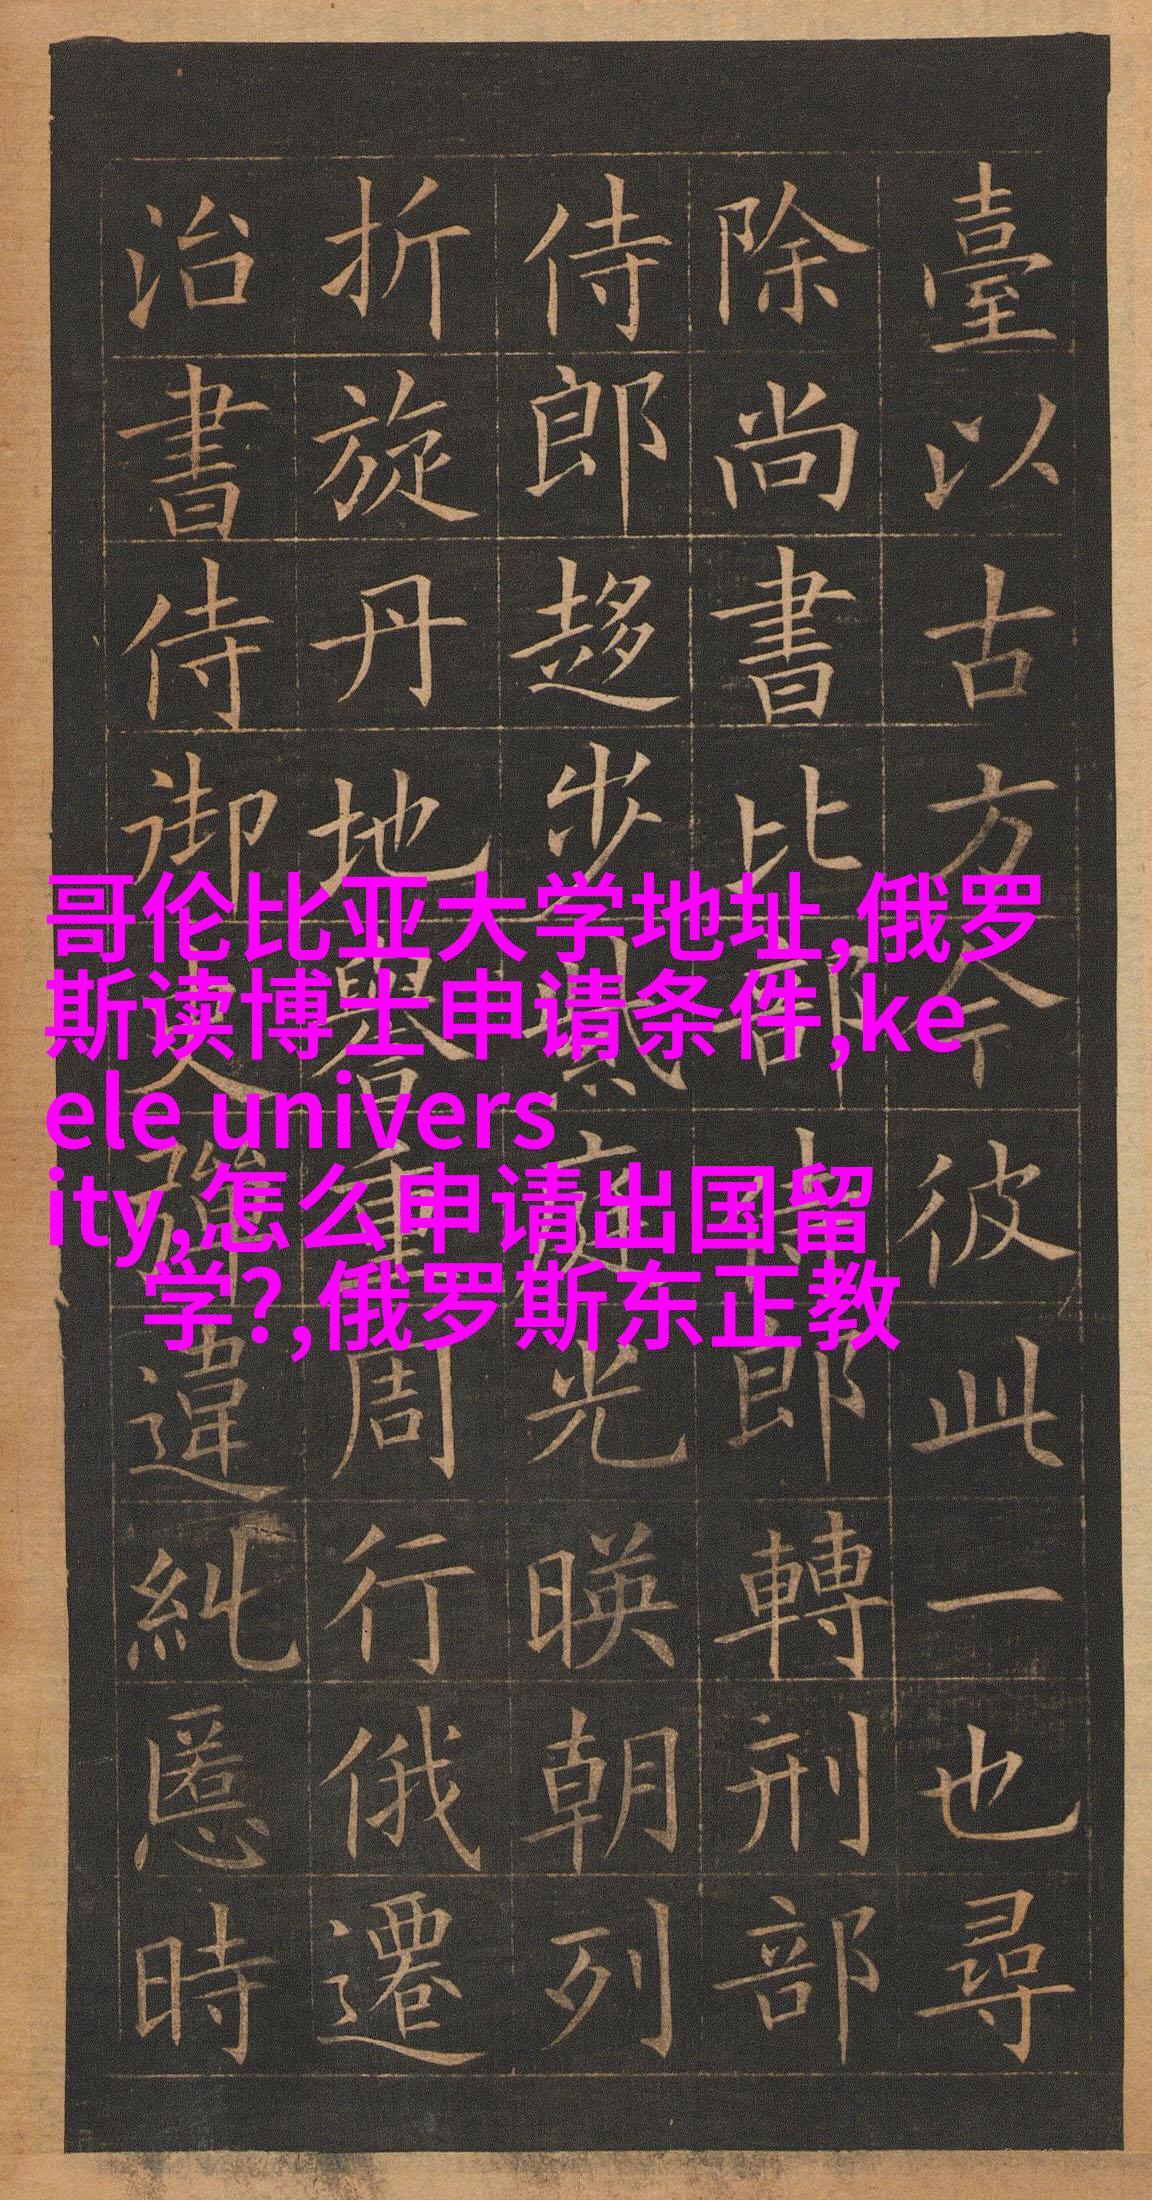 臺以古方今彼此一也尋
除尚書比部郎轉刑部
侍郎趍步庭光暎朝列
折旋丹地譽重周行俄遷
治書侍御史彈違糺慝時
哥伦比亚大学地址,俄罗
斯读博士申请条件,ke
ele univers
ity,怎么申请出国留
学?,俄罗斯东正教